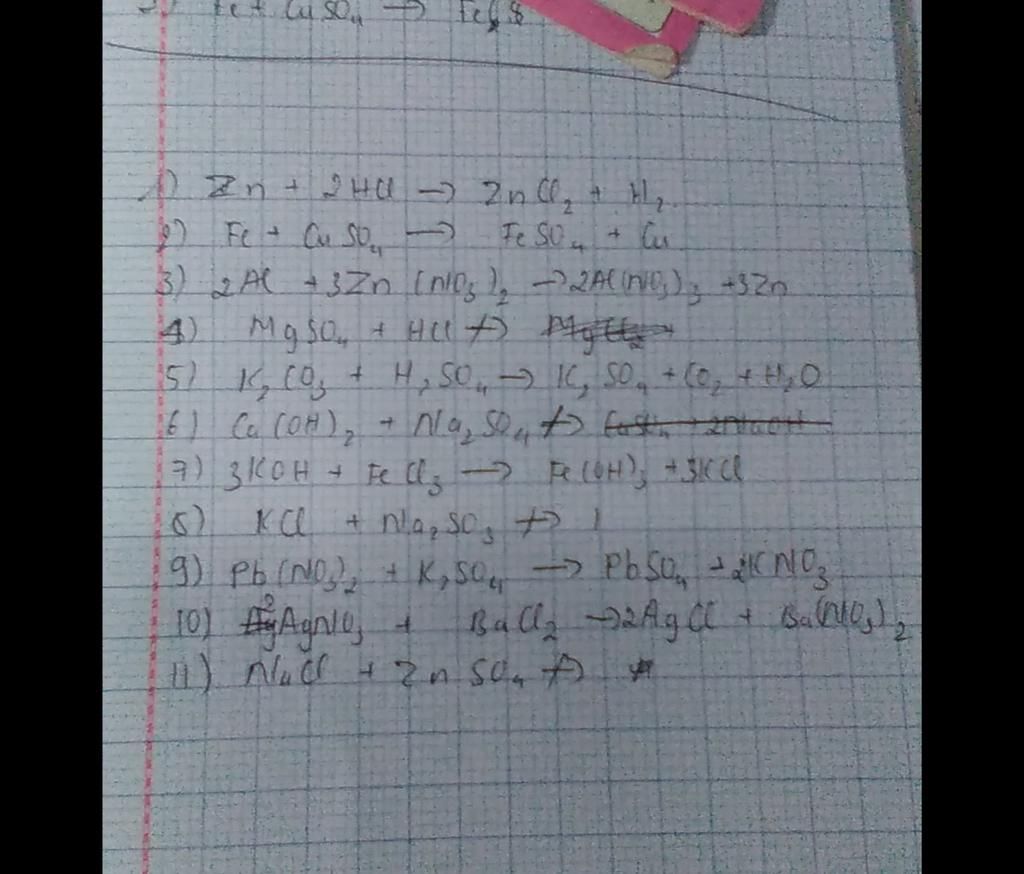 Fe + CuSO₄ → Fe
1) Zn + 2HCl → ZnCl₂ + H₂
2) Fe + CuSO₄ → FeSO₄ + Cu
3) 2Al + 3Zn(NO₃)₂ → 2Al(NO₃)₃ + 3Zn
4) MgSO₄ + HCl ↛ MgCl₂
5) K₂CO₃ + H₂SO₄ → K₂SO₄ + CO₂ + H₂O
6) Ca(OH)₂ + Na₂SO₄ ↛ CaSO₄ + 2NaOH
7) 3KOH + FeCl₃ → Fe(OH)₃ + 3KCl
8) KCl + Na₂SO₃ ↛
9) Pb(NO₃)₂ + K₂SO₄ → PbSO₄ + 2KNO₃
10) 2AgNO₃ + BaCl₂ → 2AgCl + Ba(NO₃)₂
11) NaCl + ZnSO₄ ↛